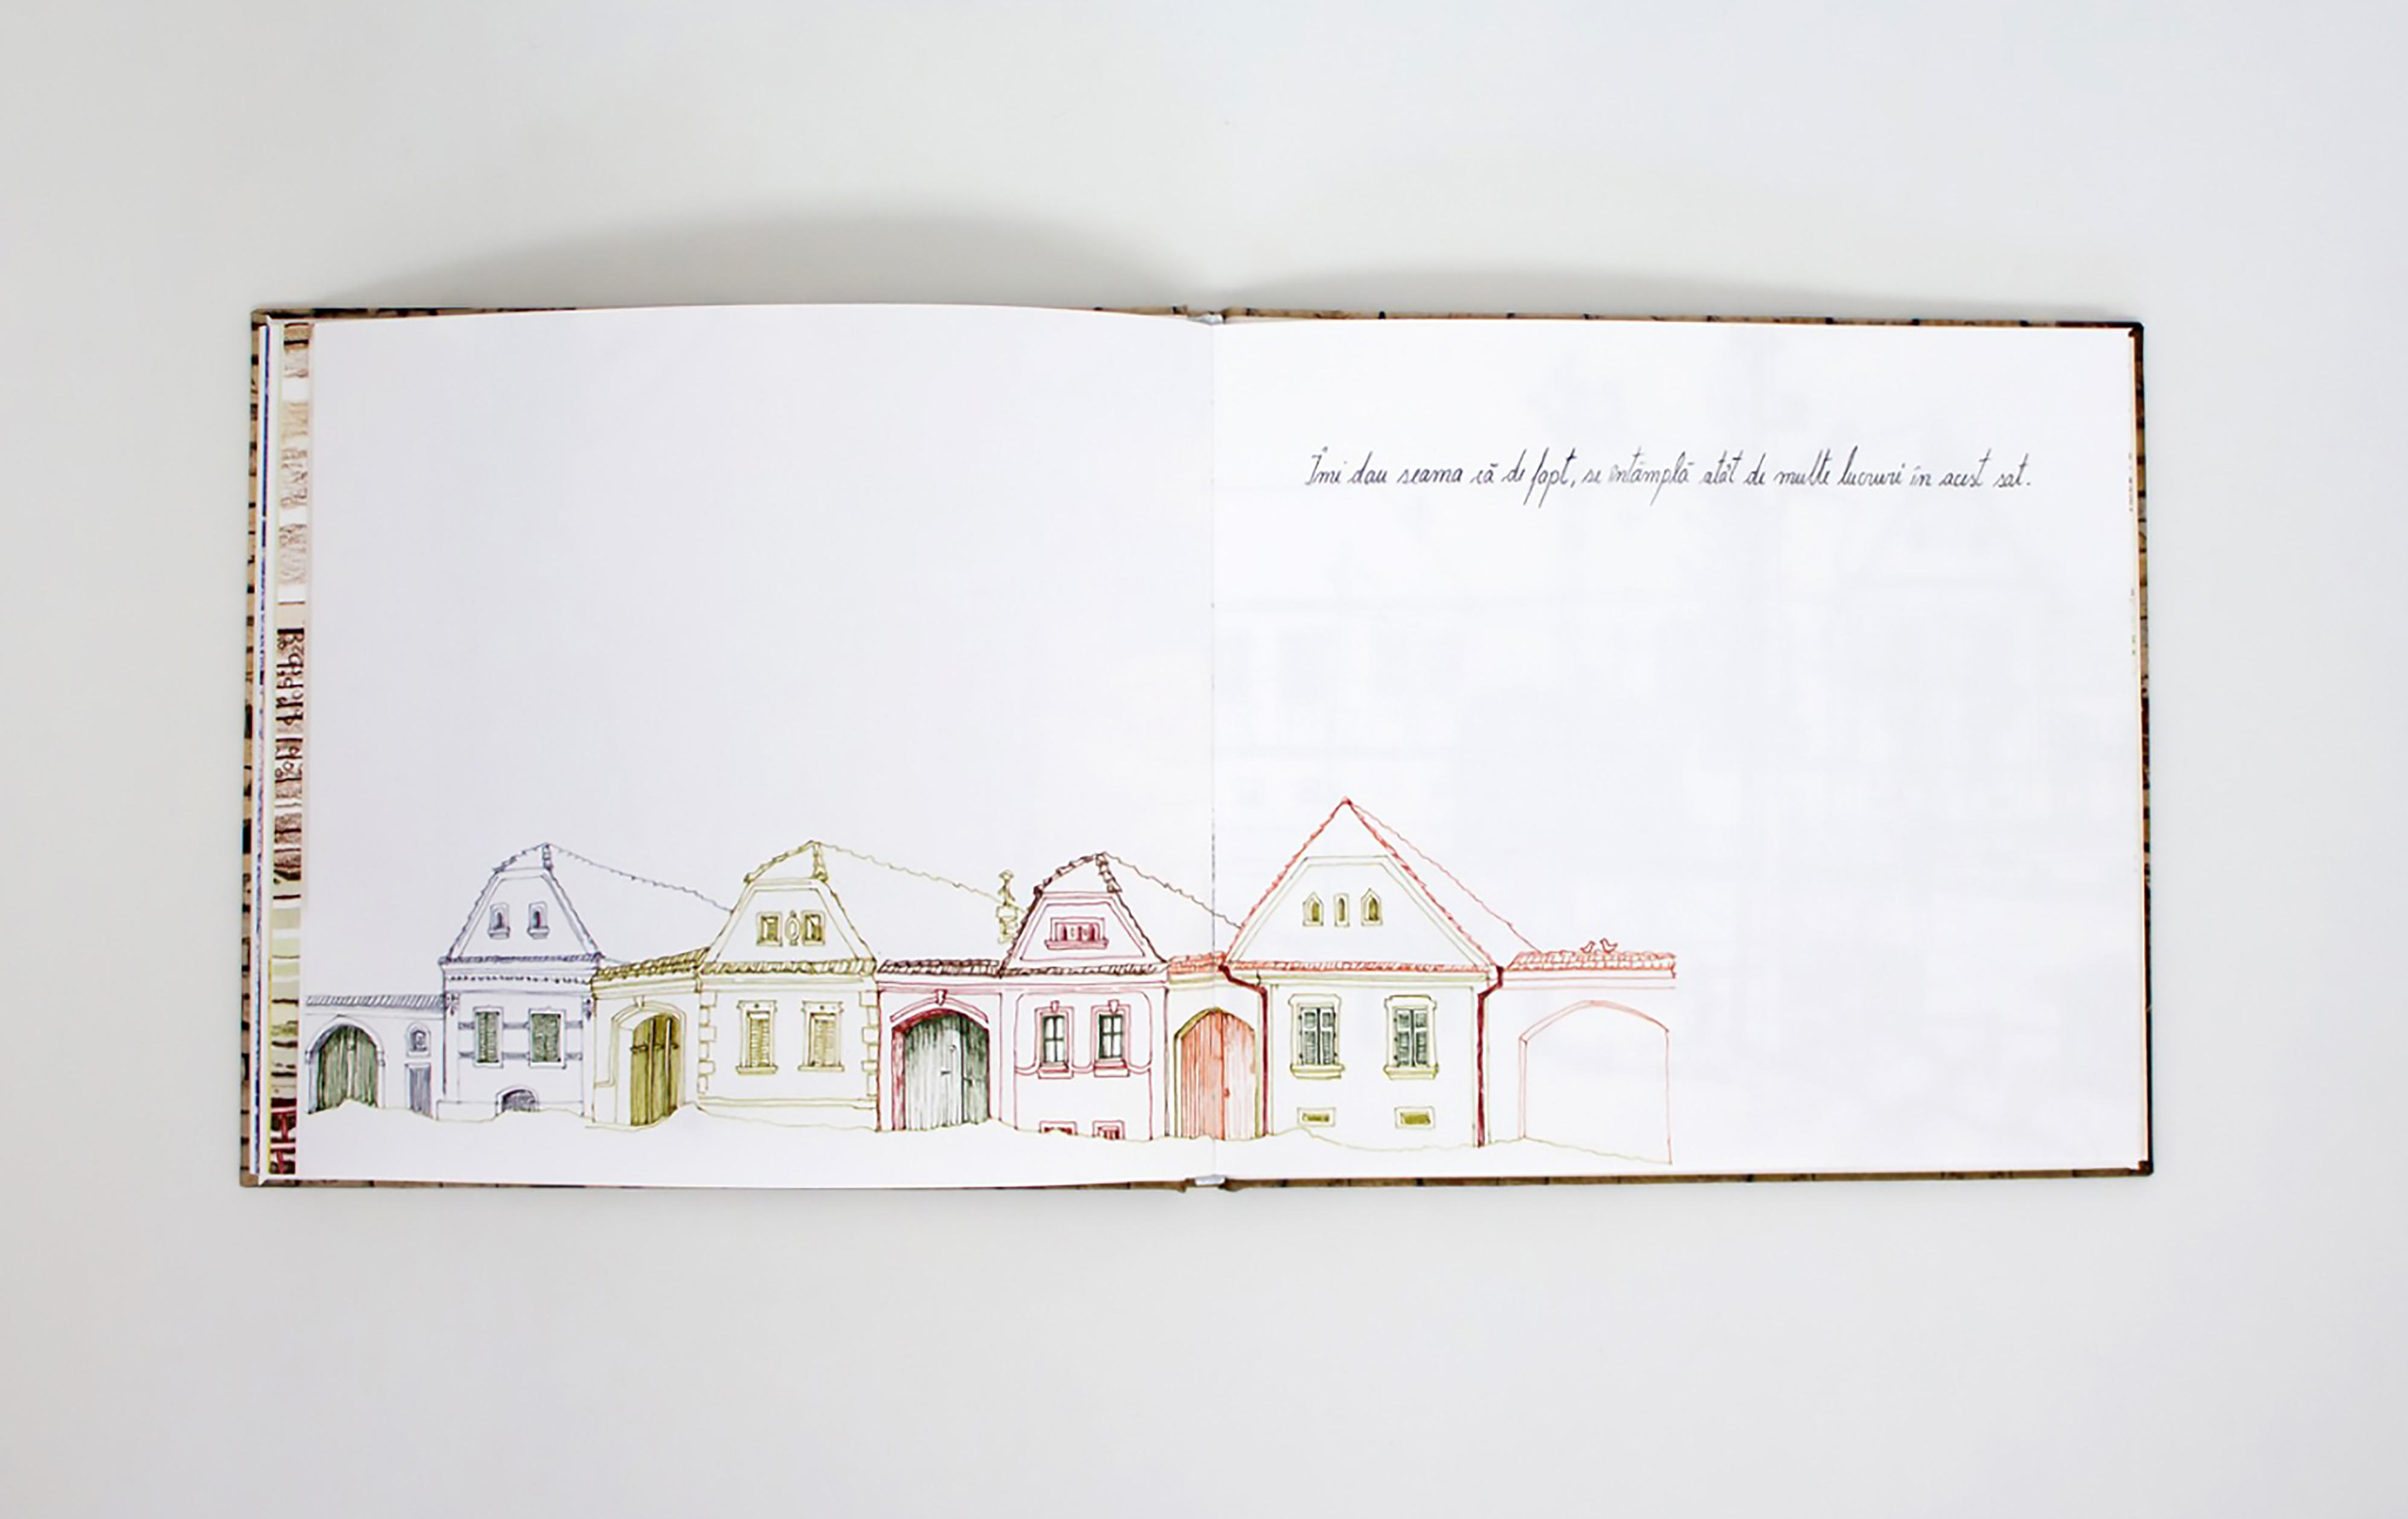 Îmi dau seama că de fapt, se întâmplă atât de multe lucruri în acest sat.